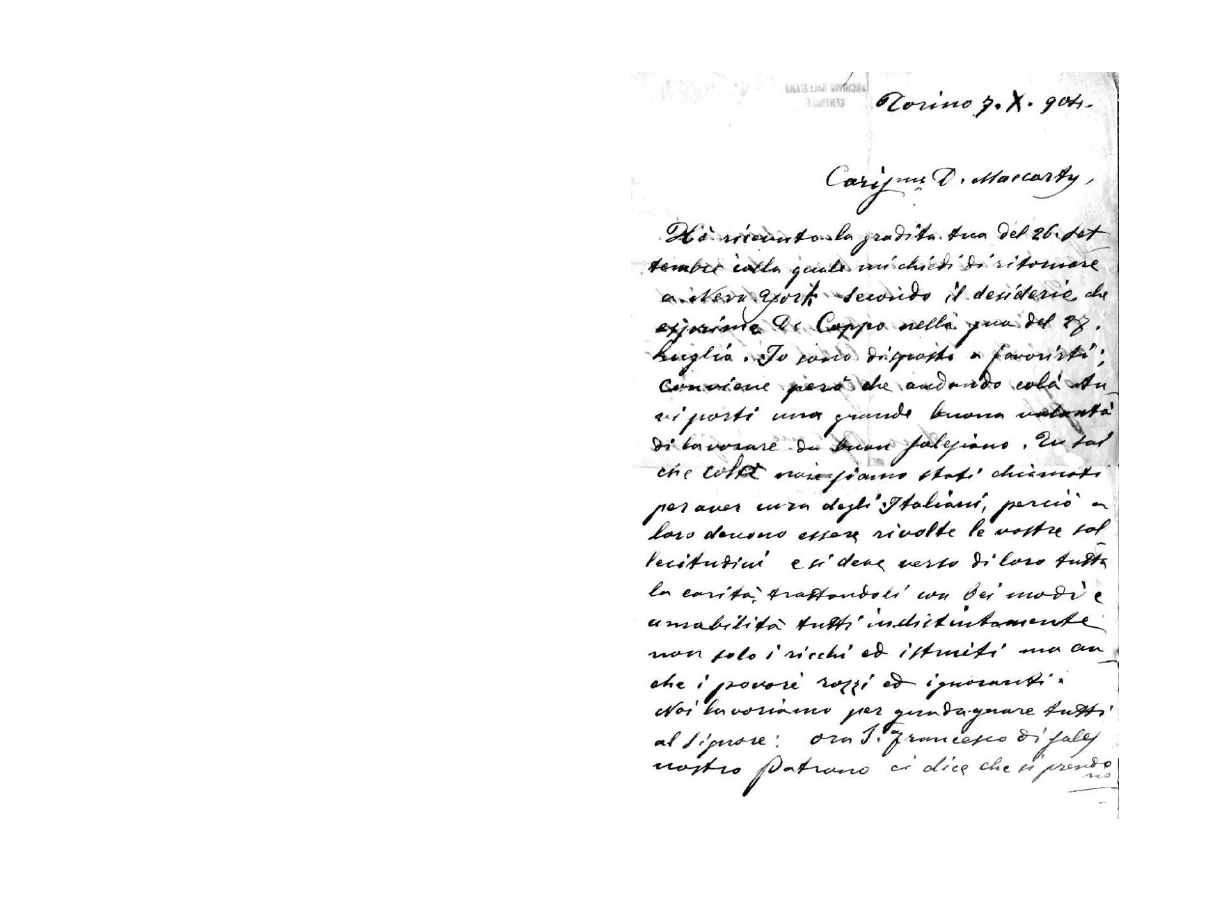 ARCHIVIO SALESIANO
CENTRALE
Torino 7. X. 904.
D. Maccarty,
Hò ricevuto la gradita tua del 26. set
tembre colla quale mi chiedi di ritornare
a New York secondo il desiderio che
esprime D. Coppo nella sua del 27.
Luglio. Io sono disposto a favorirti;
conviene però che andando colà tu
vi porti una grande buona volontà
di lavorare da buon salesiano. Tu sai
che colà noi siamo stati chiamati
per aver cura degli Italiani, perciò a
loro devono essere rivolte le vostre sol
lecitudini e si deve verso di loro tutta
la carità, trattandoli con bei modi e
amabilità tutti indistintamente
non solo i ricchi ed istruiti ma an
che i poveri rozzi ed ignoranti.
Noi lavoriamo per guadagnare tutti
al Signore: ora S. Francesco di Sales
nostro Patrono ci dice che si prendo
no